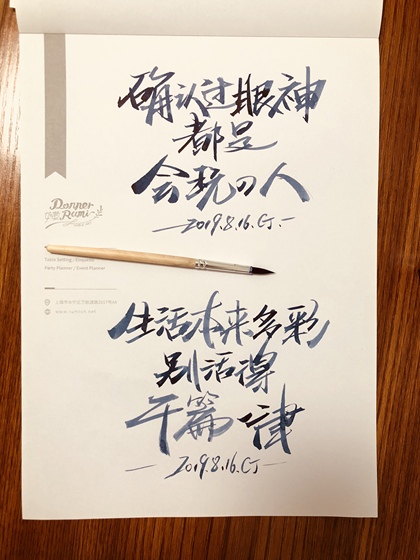 确认过眼神
都是
会玩的人
—2019.8.16.CJ.—
Donner
Rumi
Party Planner / Event Planner
生活本来多彩
别活得
千篇一律
—2019.8.16.CJ—